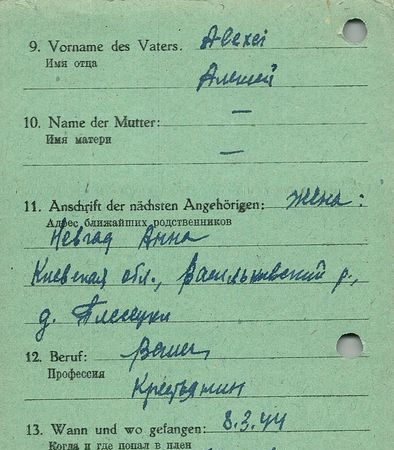 9. Vorname des Vaters. Alexei
Имя отца
Алексей
10. Name der Mutter: —
Имя матери
—
11. Anschrift der nächsten Angehörigen: жена:
Адрес ближайших родственников
Анна
Киевская обл., Васильковский р.,
д.
12. Beruf: Bauer
Профессия
Крестьянин
13. Wann und wo gefangen: 8.3.44
Когда и где попал в плен